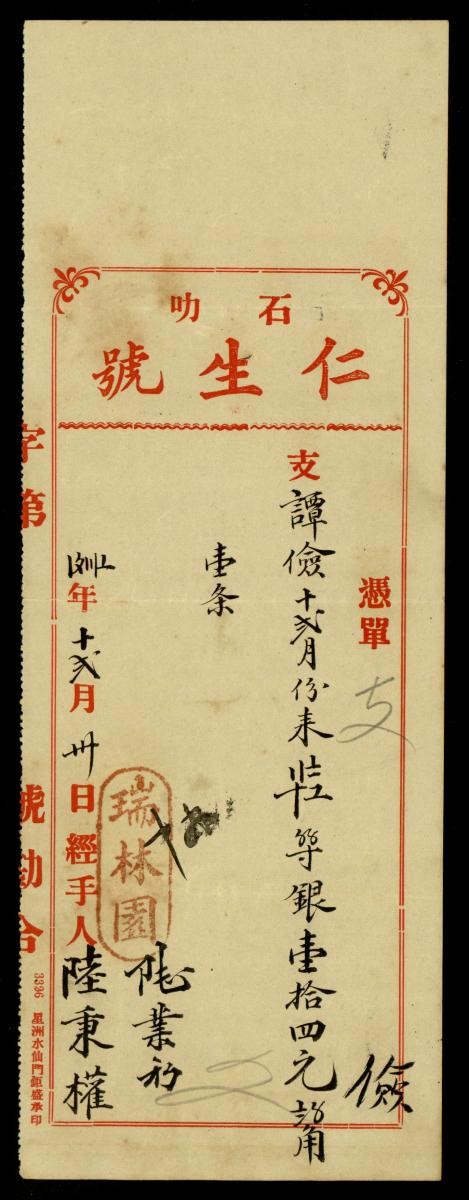 石叻
仁生號
憑單
支
儉
支譚儉十弍月份来
等銀壹拾四元
角
壹条
瑞林園
業
年十弍月卅日經手人陸秉權
字第 號勘合
3396 星洲水仙門鉅盛承印